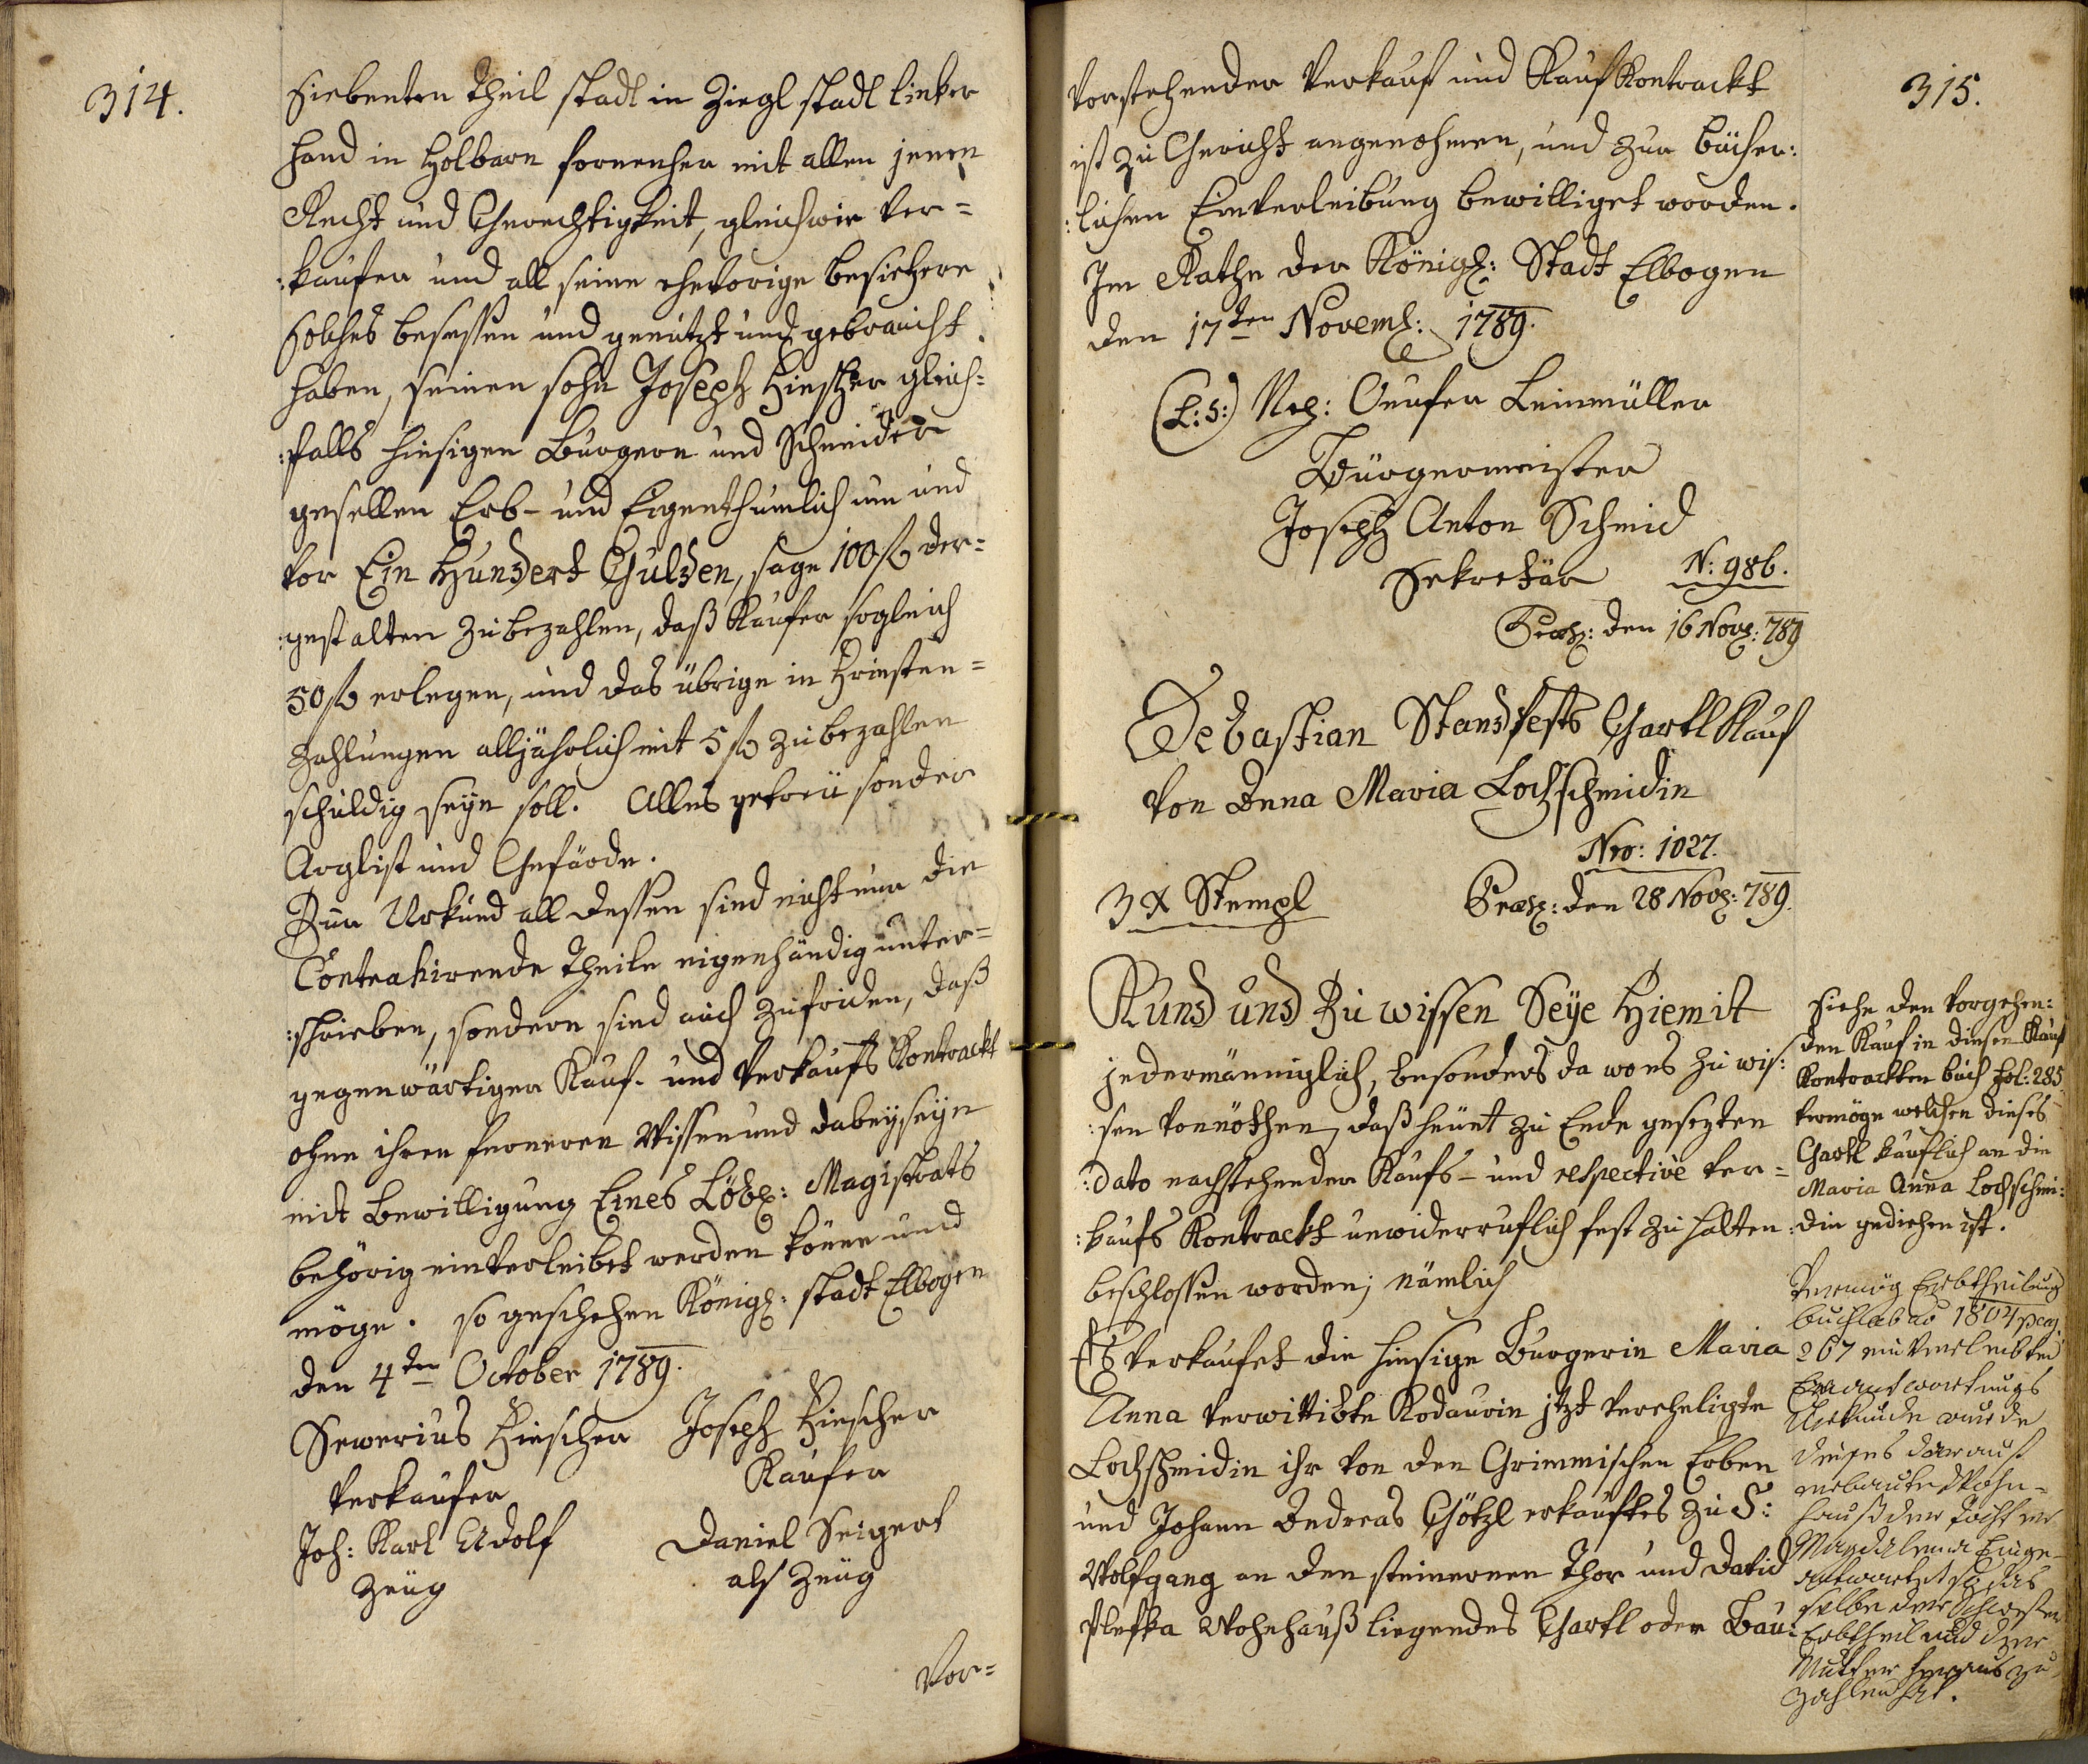 314.
siebenten Theil stadl in Ziegl stadl linker
hand in Holbarn fornenher mit allen jenen
Recht und Gerechtigkeit, gleichwie Ver=
:kaufer und all seine ehevorige besiezere
solches besessen und genutzt und gebraucht
haben, seinen sohn Joseph Hiescher gleich=
:falls hiesigen Burgern und Schneider
gesellen Erb- und Eigenthumlich um und
vor Ein Hundert Gulden, sage 100 f der=
:gestalten zu bezahlen, daß Kaufer sogleich
50 f erlegen, und das übrige in Friesten=
zahlungen alljährlich mit 5 f zu bezahlen
schuldig seyn soll. Alles getreu sonder
Arglist und Gefärde.
Zur Urkund all dessen sind nicht nur die
Contrahirende Theile eigenhändig unter=
:schrieben, sondern sind auch zufriden, daß
gegenwärtiger Kauf- und Verkaufs Kontrackt
ohne ihren ferneren Wissen und dabeyseyn
mit Bewilligung Eines Löbl: Magistrats
behörig einverleibet werden könne und
möge. so geschehen Königl: stadt Elbogen
den 4ten October 1789.
Severius Hiescher Joseph Hiescher
Verkaufer Kaufer
Joh: Karl Adolf Daniel Seigert
Zeug als Zeug
Vor=
315.
Vorstehender Verkauf und Kauf Kontrackt
ist zu Gericht angenohmen, und zur bücher:
:lichen Einverleibung bewilliget worden.
Im Rathe der Königl: Stadt Elbogen
den 17ten Noveml: 1789.
(L:S:) Leinmüller
Bürgermeister
Joseph Anton Schmid
Sekretär N: 986.
Præs: den 16 Nov: 789
Sebastian Standfests Gartl Kauf
Von Anna Maria Lochschmidin
Nro: 1027.
3 x Stempl Præs: den 28 Nov: 789.
Kund und Zu wissen Seye Hiemit
jedermänniglich, besonders da wo es zu wis:
:sen vonnöthen, daß heunt zu Ende gesezten
:dato nachstehender Kaufs- und respective Ver=
:kaufs Kontrackt unwiderruflich fest zu halten
beschlossen worden; nämlich
Es verkaufet die hiesige Burgerin Maria
Anna verwittibte Kodaurin jtzt verehligte
Lochschmidin ihr von den Grimmischen Erben
und Johann Andreas Götzl erkauftes zu S:
Wolfgang an den steinernen Thor und David
Plefka Wohnhauß liegendes Gartl oder Bau:
siehe den vorgehen:
den Kauf in diesen Kauf
Kontrackten buch Fol: 285
vermöge welchen dieses
Gartl käuflich an die
Maria Anna Lochschmi:
:din gediehen ist.
Vermög Erbtheilung
buch lab ao 1804 pag
267 einverleibten
Einantwortungs
Urkunde wurde
dieses darauf
erbaute Wohn=
hauß der Tochter
Magdalena Einge-
antwortet so das
selbe der Schwester
Erbtheil und der
Mutter heraus zu
zahlen hat.